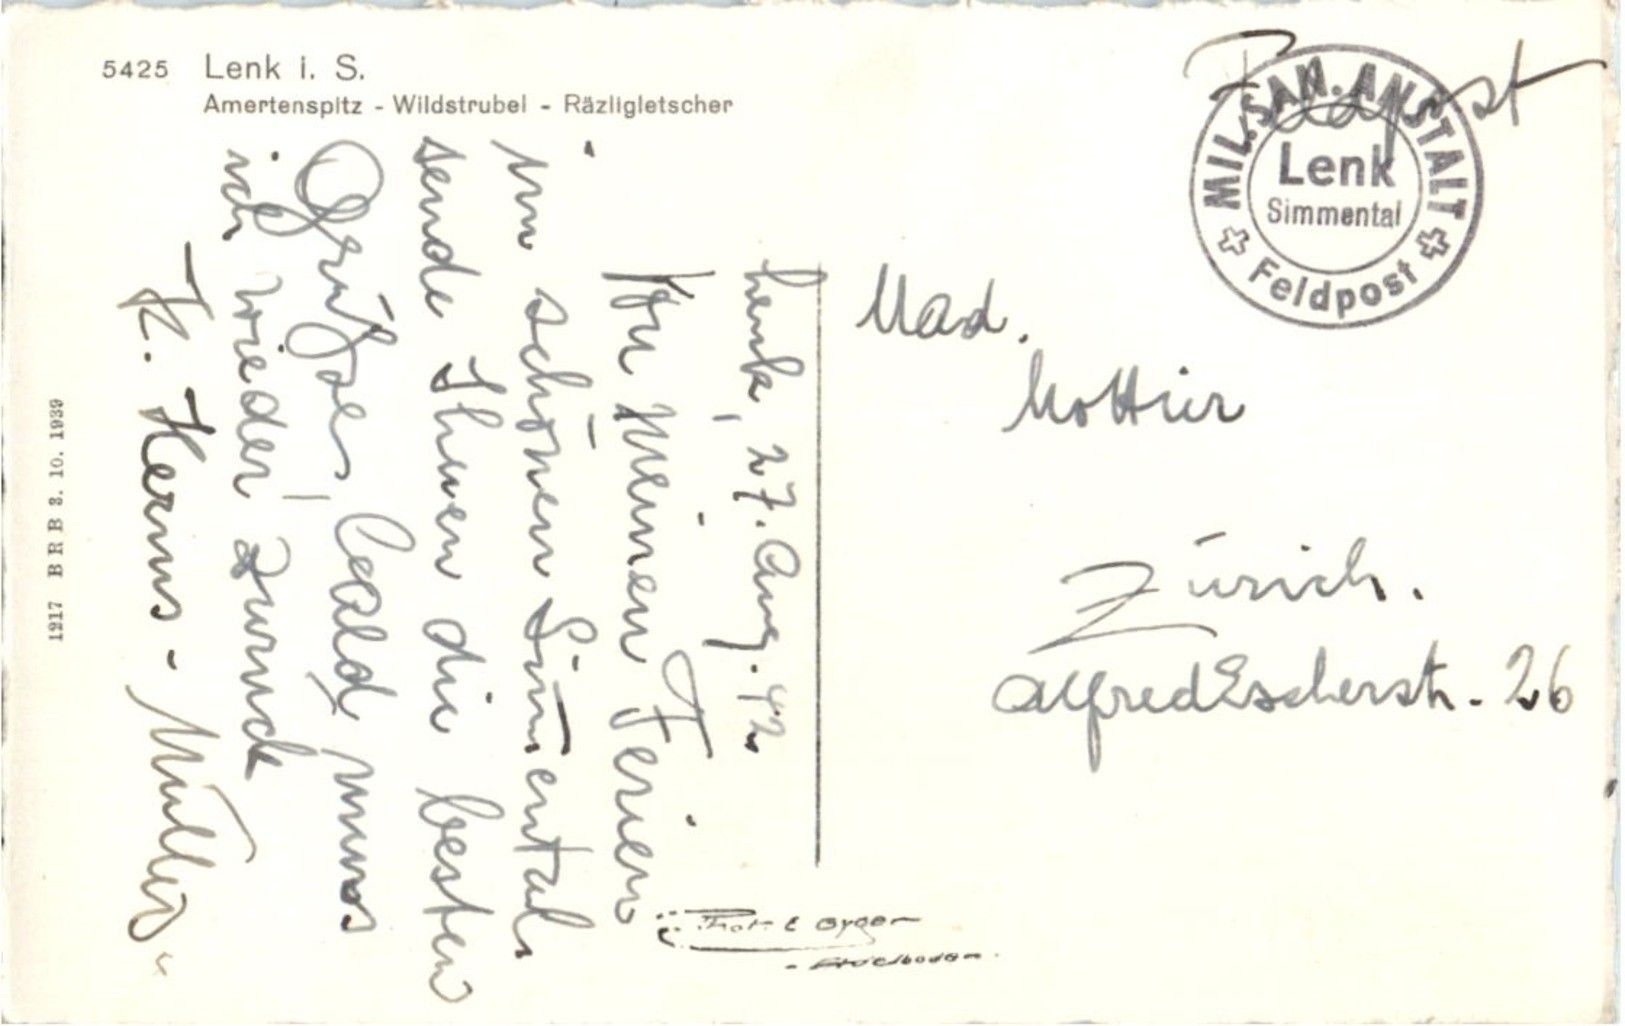 5425 Lenk i. S.
Amertenspitz - Wildstrubel - Räzligletscher
1917 B R B 3. 10. 1939
Feldpost
MIL. SAN. ANSTALT
Lenk
Simmental
Feldpost
Lenk, 27. Aug. 42
meinen Ferien
im schönen Simental
sende Ihnen die besten
Grüsse, bald muss
ich wieder zurück
K. Herms - Müller
Mad.
Mottier
Zürich.
Alfred Escherstr. 26
Phot. E Gyger
Adelboden